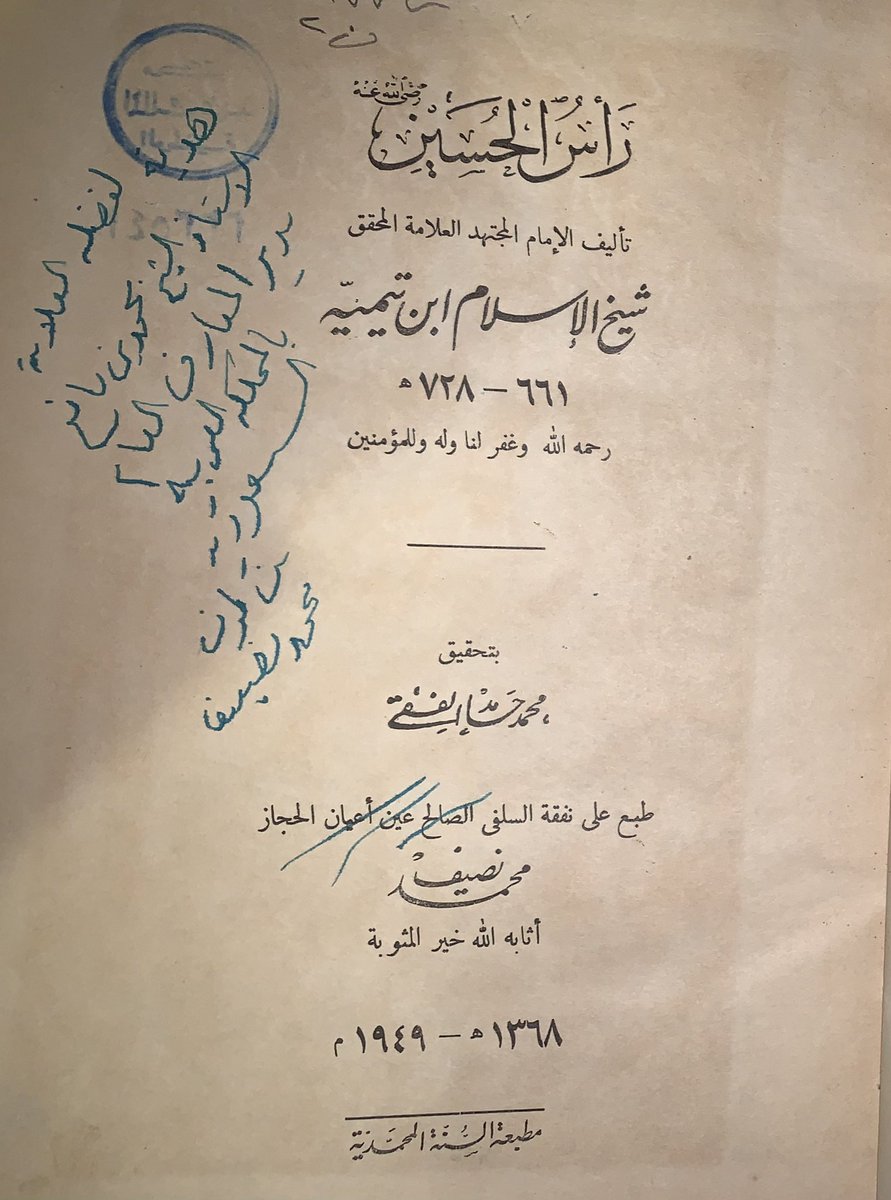 رَأْسُ الْحُسَيْنِ
رضي الله عنه
تأليف الإمام المجتهد العلامة المحقق
شيخ الإسلام ابن تيميّه
٦٦١ — ٧٢٨ ه
رحمه الله وغفر لنا وله وللمؤمنين
بتحقيق
محمد حامد الفقي
طبع على نفقة السلفى الصالح عين أعيان الحجاز
محمد نصيف
أثابه الله خير المثوبة
١٣٦٨ ه — ١٩٤٩ م
مطبعة السُّنَّة المحمَّديَّة
هدية لفضيلة العلامة
الأستاذ الشيخ محمد بن مانع
مدير المعارف العام
بالمملكة العربية
السعودية من
محمد نصيف